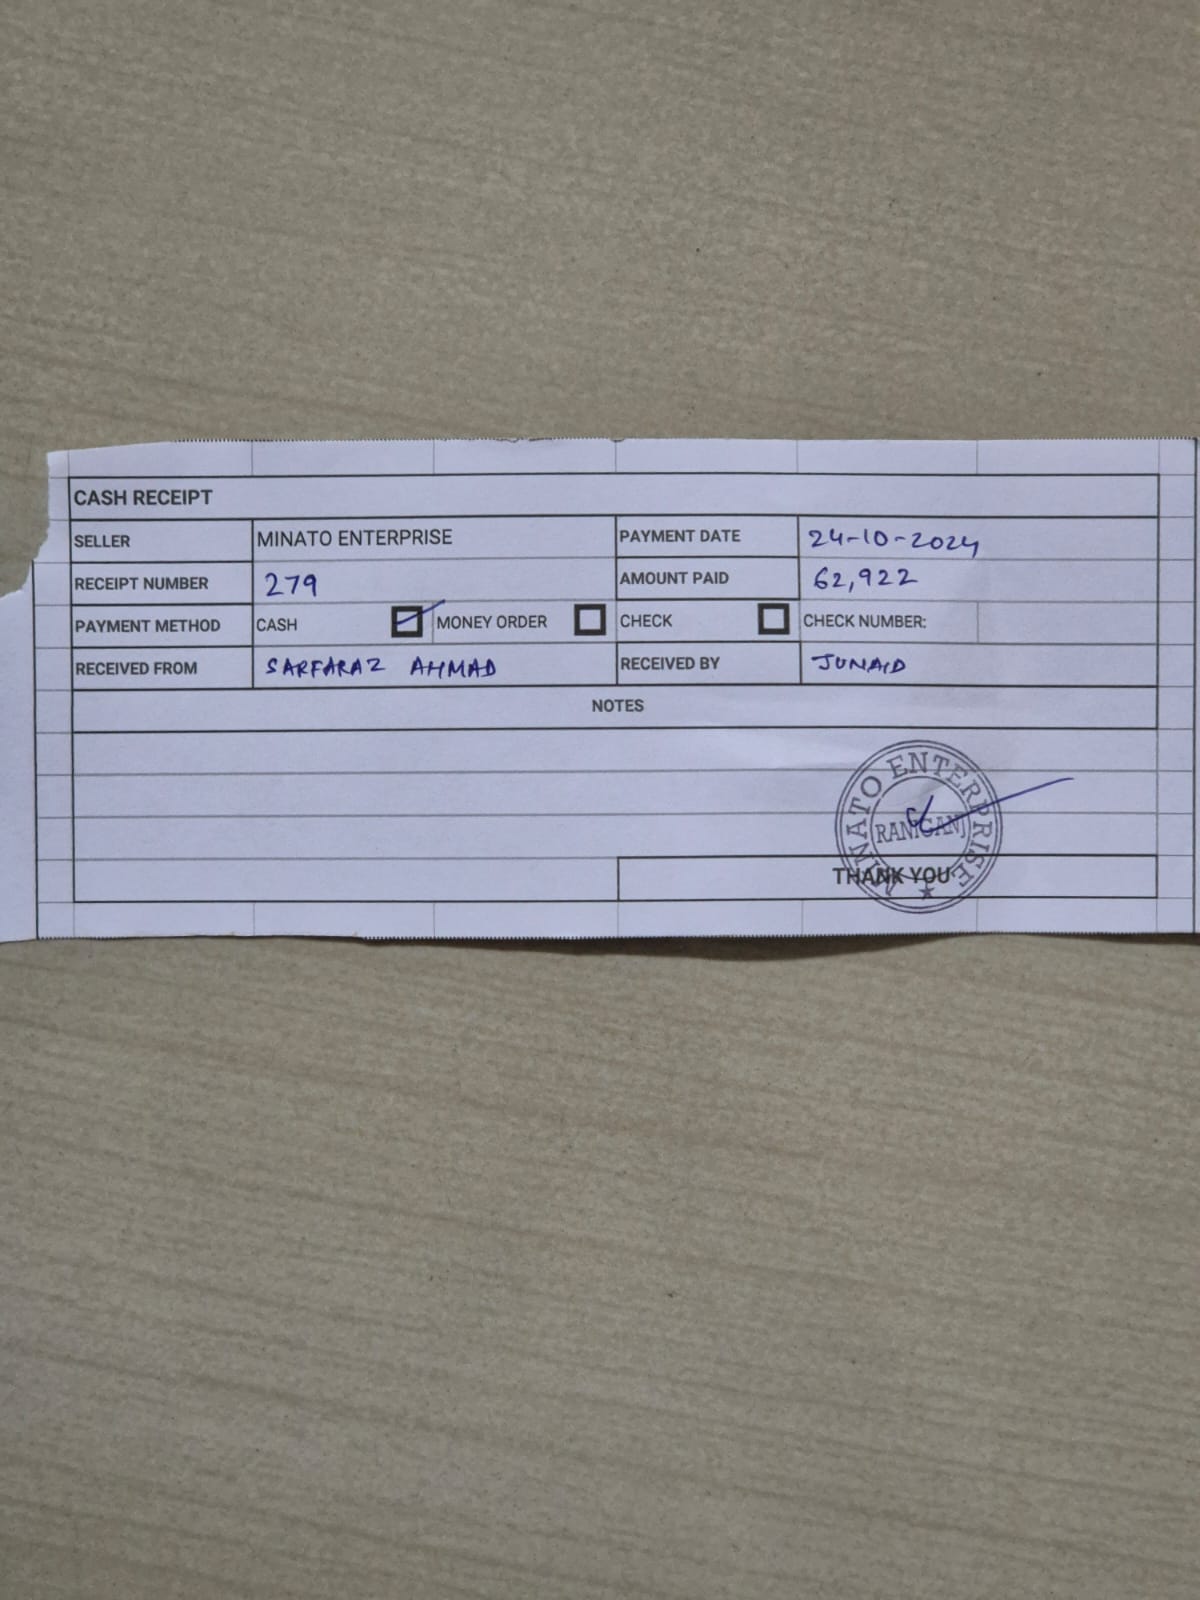 CASH RECEIPT
SELLER MINATO ENTERPRISE PAYMENT DATE 24-10-2024
RECEIPT NUMBER 279 AMOUNT PAID 62,922
PAYMENT METHOD CASH MONEY ORDER CHECK CHECK NUMBER:
RECEIVED FROM SARFARAZ AHMAD RECEIVED BY JUNAID
NOTES
MINATO ENTERPRISE
RANIGANJ
THANK YOU